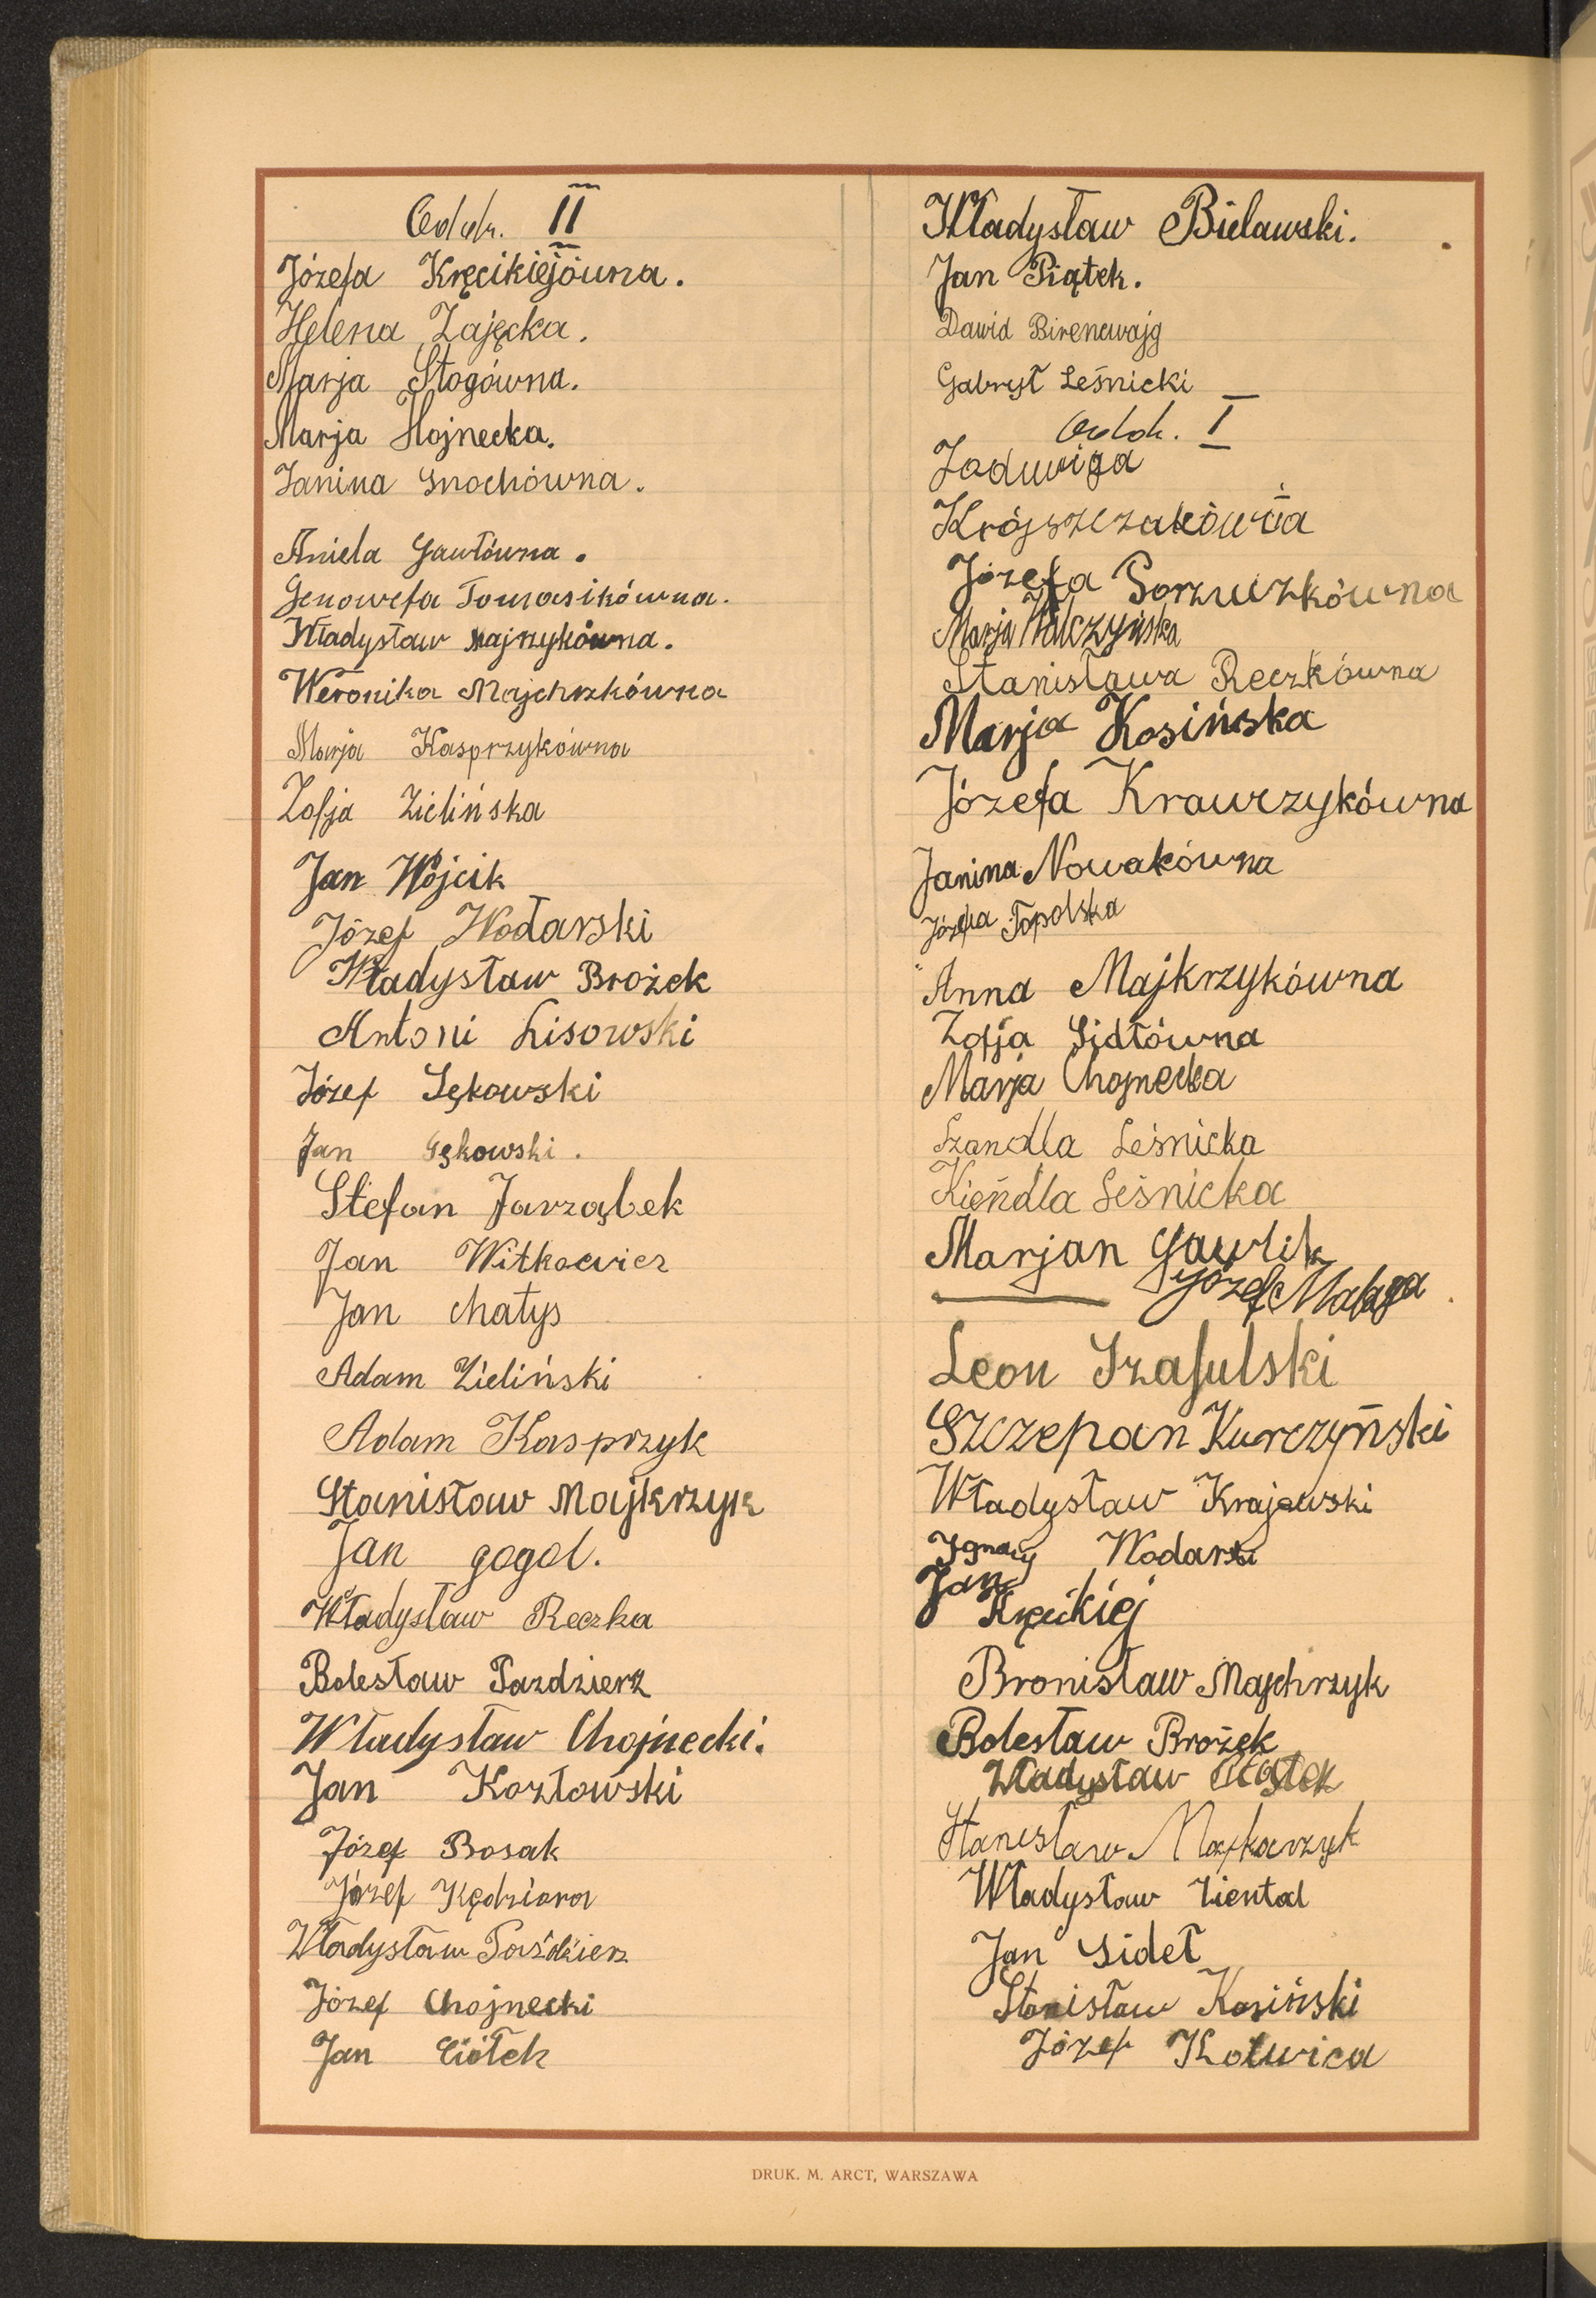 Oddz. II
Józefa Kręcikiejówna.
Helena Zajęcka.
Marja Stogówna.
Marja Hojnecka.
Janina Gnochówna.
Aniela Gawłówna.
Genowefa Tomasikówna.
Władysław Majrzykówna.
Weronika Majchrzkówna
Marja Kasprzykówna
Zofja Zielińska
Jan Wójcik
Józef Wodarski
Władysław Brożek
Antoni Lisowski
Józef Sękowski
Jan Sękowski.
Stefan Jarząbek
Jan Witkowicz
Jan Chałys
Adam Zieliński
Adam Kasprzyk
Stanisław Majkrzyk
Jan gogol.
Władysław Reczka
Bolesław Pazdzierz
Władysław Chojnecki.
Jan Kozłowski
Józef Bosak
Józef Kędziora
Władysław Paździerz
Józef Chojnecki
Jan Ciółek
Władysław Bielawski.
Jan Piątek.
Dawid Birenewajg
Gabrył Leśnicki
Oddz. I
Jadwiga
Krójszczakówna
Józefa Gorzuczkówna
Marja Wilczyńska
Stanisława Reczkówna
Marja Kosińska
Józefa Krawczykówna
Janina Nowakówna
Józefa Topolska
Anna Majkrzykówna
Zofja Sidłówna
Marja Chojnecka
Szandla Leśnicka
Kiendla Leśnicka
Marjan Gawlik
Józef
Leon Szafulski
Szczepan Kurczyński
Władysław Krajewski
Ignacy Wodarski
Jan
Kręcikiej
Bronisław Majchrzyk
Bolesław Brożek
Władysław
Stanisław Majkarzyk
Władysław Ziental
Jan Sideł
Stanisław Kosiński
Józef Kotwica
DRUK. M. ARCT, WARSZAWA